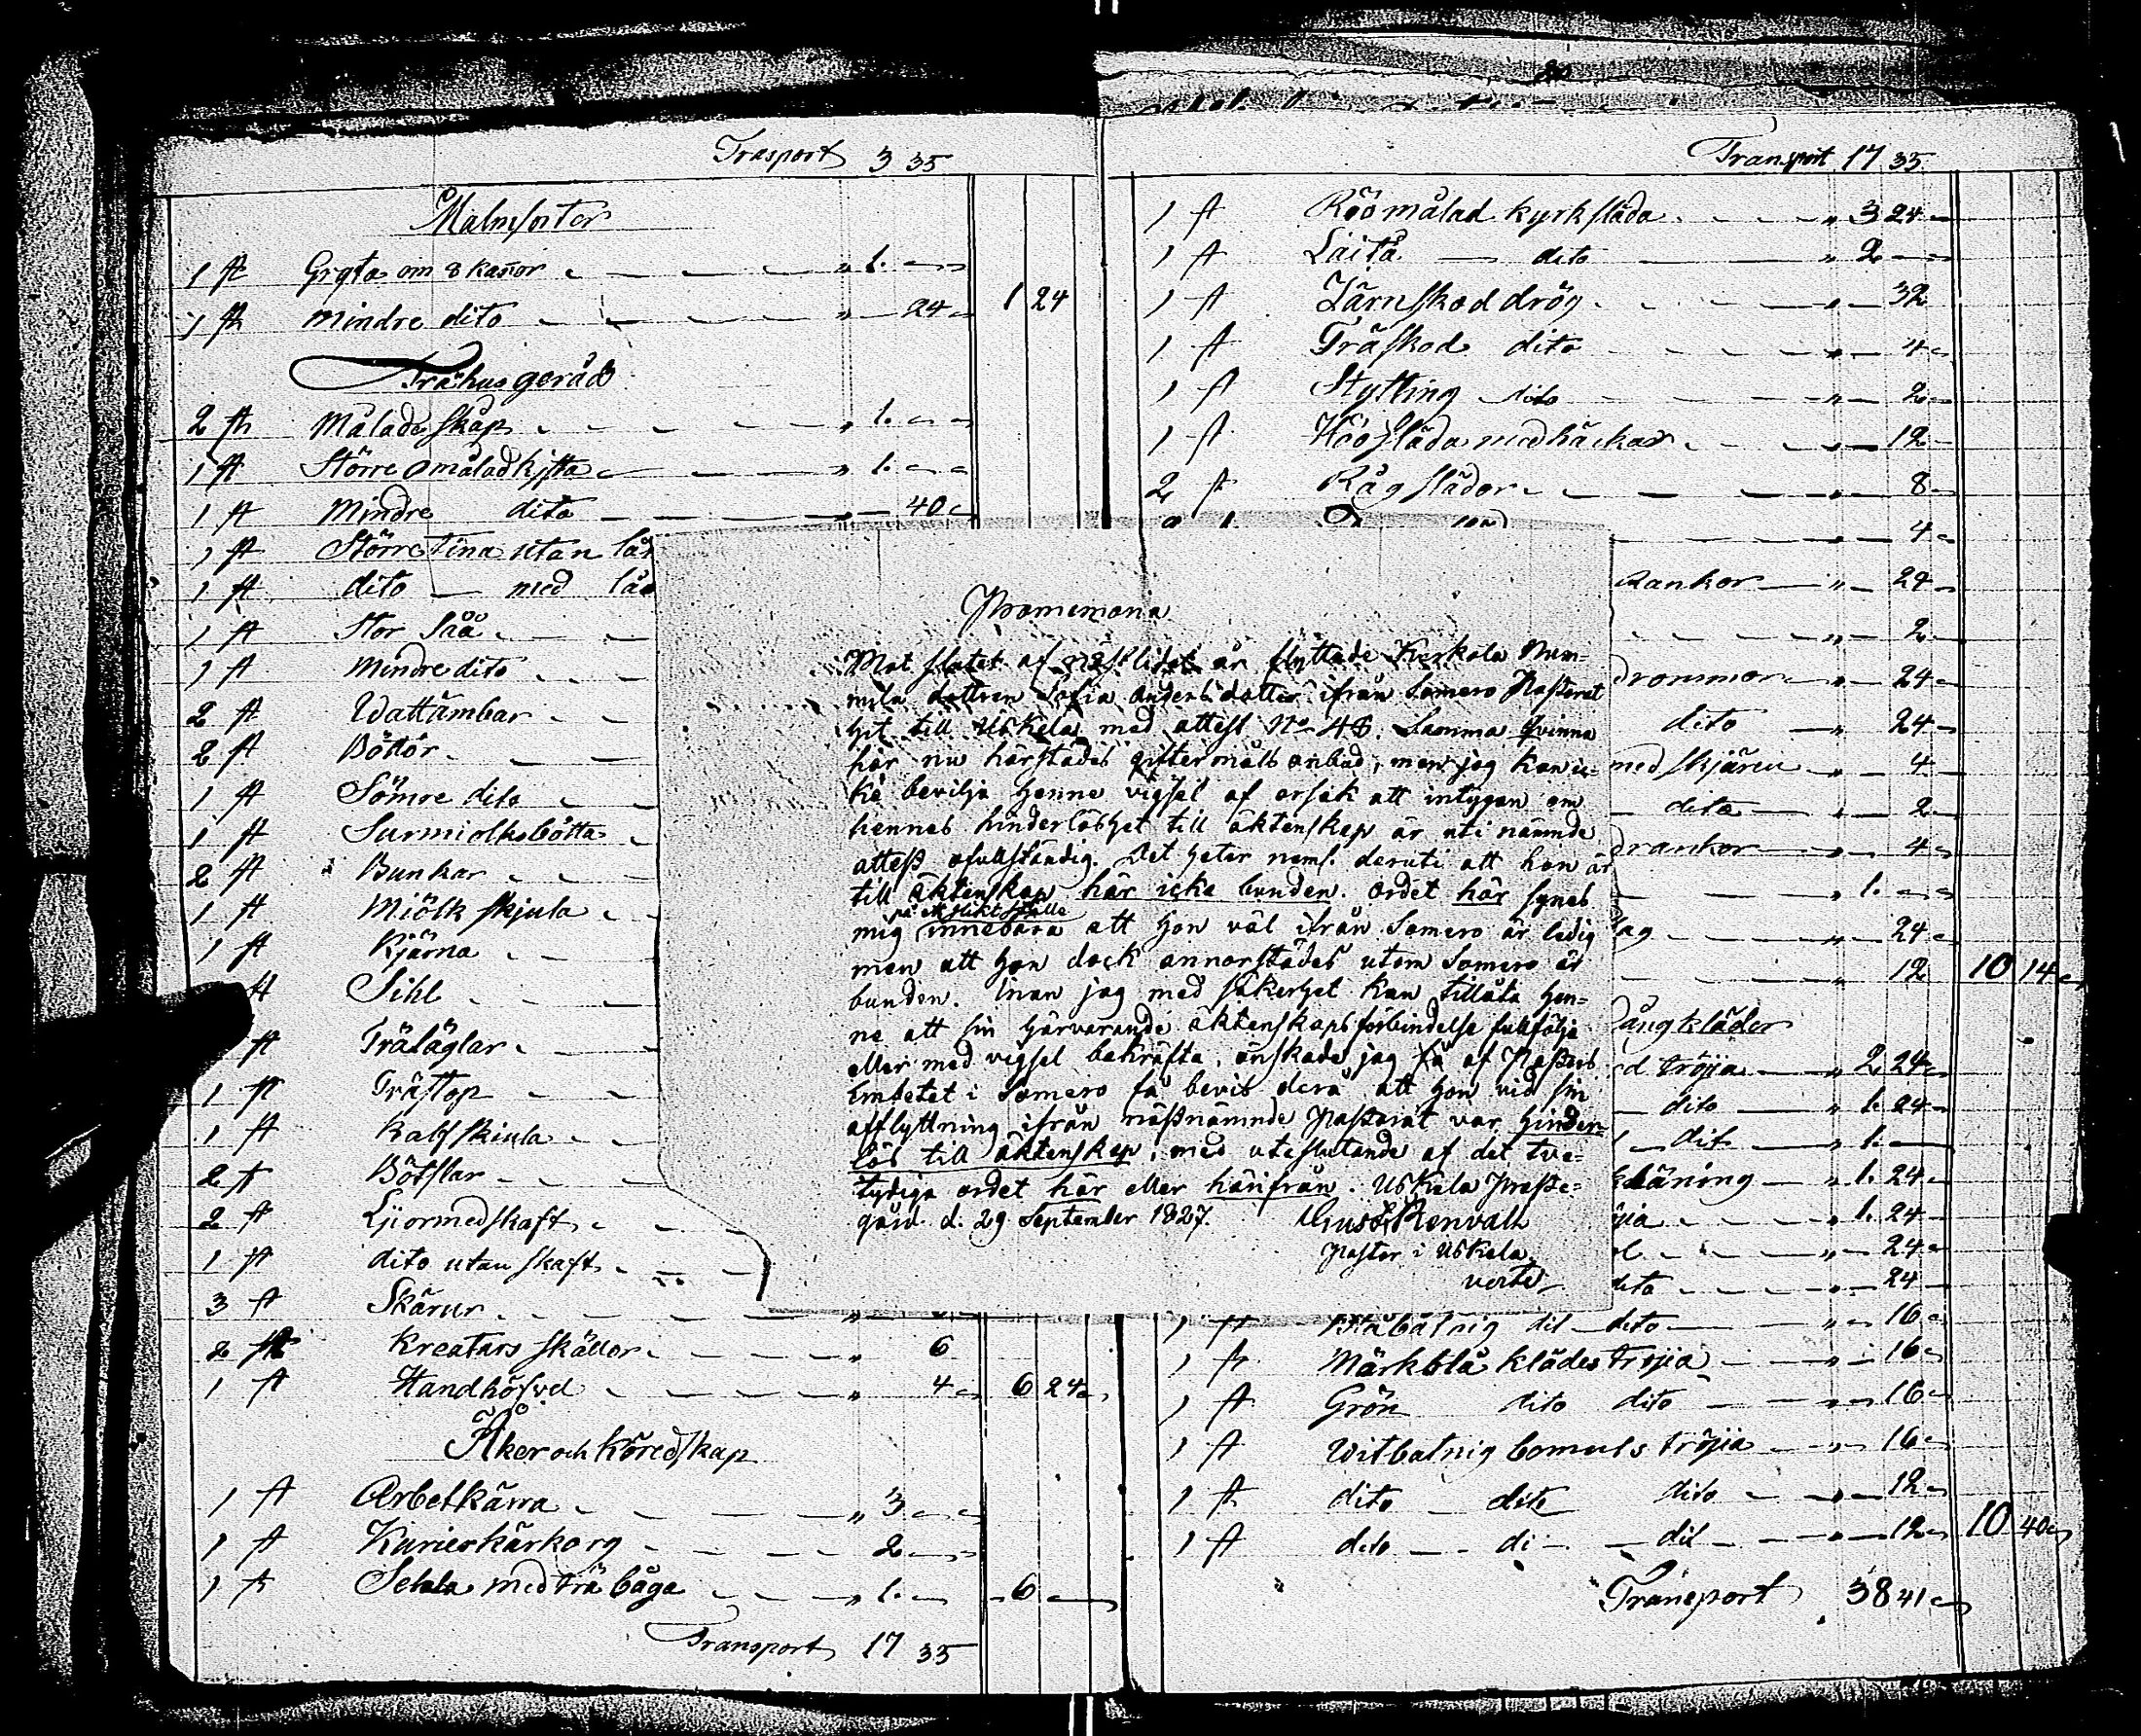 Trasport 3 35
Malmsater
1 st Gryta om 8 kañor " 1. —
1 st mindre dito " 24 1 24
Trähusgeråd
2 st Målade skåp " 1. —
1 st Större omålad kista " 1. —
1 st mindre dito " 40
1 st Större tina utan
1 st dito med
1 st Stor Såå
1 st mindre dito
2 st Wattämbar
2 st Böttor
1 st Sömre dito
1 st Surmiolksbötta
2 st Bunkar
1 st Miölk skjula
1 st Kjärna
st Sihl
st Träläglar
1 st Trästop
1 st Kalfskiula
2 st Bötslar
2 st Ljiormedskaft
1 st dito utan skaft
3 st Skärur
2 st Kreatars skällor " 6
1 st Handhöfvel " 4 6 24
Åker och Köredskap
1 st Arbetkärra " 3
1 st Kurierkärkorg 2
1 st Sehla med trä båga " 1. 6
Transport 17 35
Promemoria
Mot slutet af näst lidet år flyttade Kerkola Num=
mila dottren Sofia Andersdotter ifrån Somero Pastorat
hit till Uskela med attest No 48. Samma qvinna
har nu härstädes giftermåls anbud, men jag kan ic=
ke bevilja henne vigsel af orsak att intygan om
hennes hinderlöshet till äktenskap är uti nämnde
attest ofullständig. Det heter neml. deruti att hon är
till äktenskap här icke bunden. Ordet här synes
på ett slikt ställe
mig innebära att hon väl ifrån Somero är ledig
men att hon dock annorstädes utom Somero är
bunden. Innan jag med säkerhet kan tillåta hen=
ne att sin härvarande äktenskapsförbindelse fullfölja
eller med vigsel bekräfta, önskade jag få af Pastors
Embetet i Somero få bevis derå att hon vid sin
afflyttning ifrån nästnämnde Pastorat var hinder=
lös till äktenskap, med uteslutande af det tve=
tydiga ordet här eller härifrån. Uskela Preste=
gård d. 29 September 1827. Gust. Renvall
Pastor i Uskela
verte
Transport 17 35
1 st Röö målad kyrksläda " 3 24
1 st Laitå dito " 2
1 st Järnskod drög " 32
1 st Träskod dito " 4
1 st Stytting dito " 2
1 st Höösläda med häckar " 12
2 st Råg slädor " 8
4
Rankor " 24
" 2
drommor " 24
dito 24
med skjären " 4
dito 2
drankor " 4
1.
lag " 24
12 10 14
Gångkläder
tröjia " 2 24
dito " 1. 24
dito " 1.
kläning " 1. 24
jia " 1. 24
" 24
dito " 24
1 st Blåbatnig dil dito " 16
1 st Märkblå klädes tröjia " 16
1 st Grön dito dito " 16
1 st Witbatnig bomuls tröjia " 16
1 st dito dito dito " 12
1 st dito di dil " 12 10 40
Transport 38 41